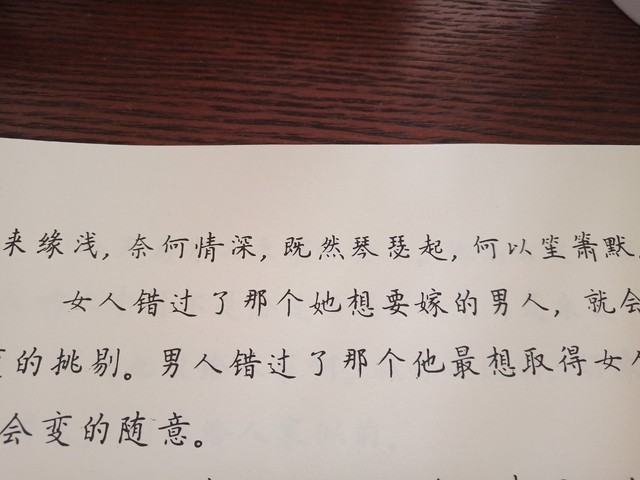 来缘浅,奈何情深,既然琴瑟起,何以笙箫默
女人错过了那个她想要嫁的男人,就会
的挑剔。男人错过了那个他最想取得女人
会变的随意。